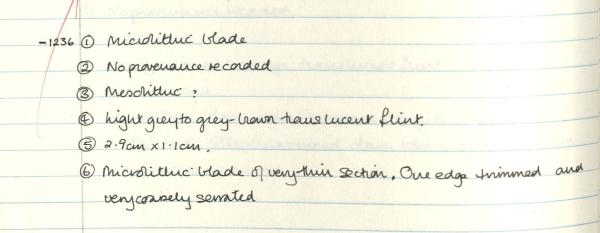 -1236 ① Microlithic blade
② No provenance recorded
③ Mesolithic ?
④ Light grey to grey-brown translucent flint.
⑤ 2.9cm x 1.1cm.
⑥ Microlithic blade of very thin section. One edge trimmed and
very coarsely serrated